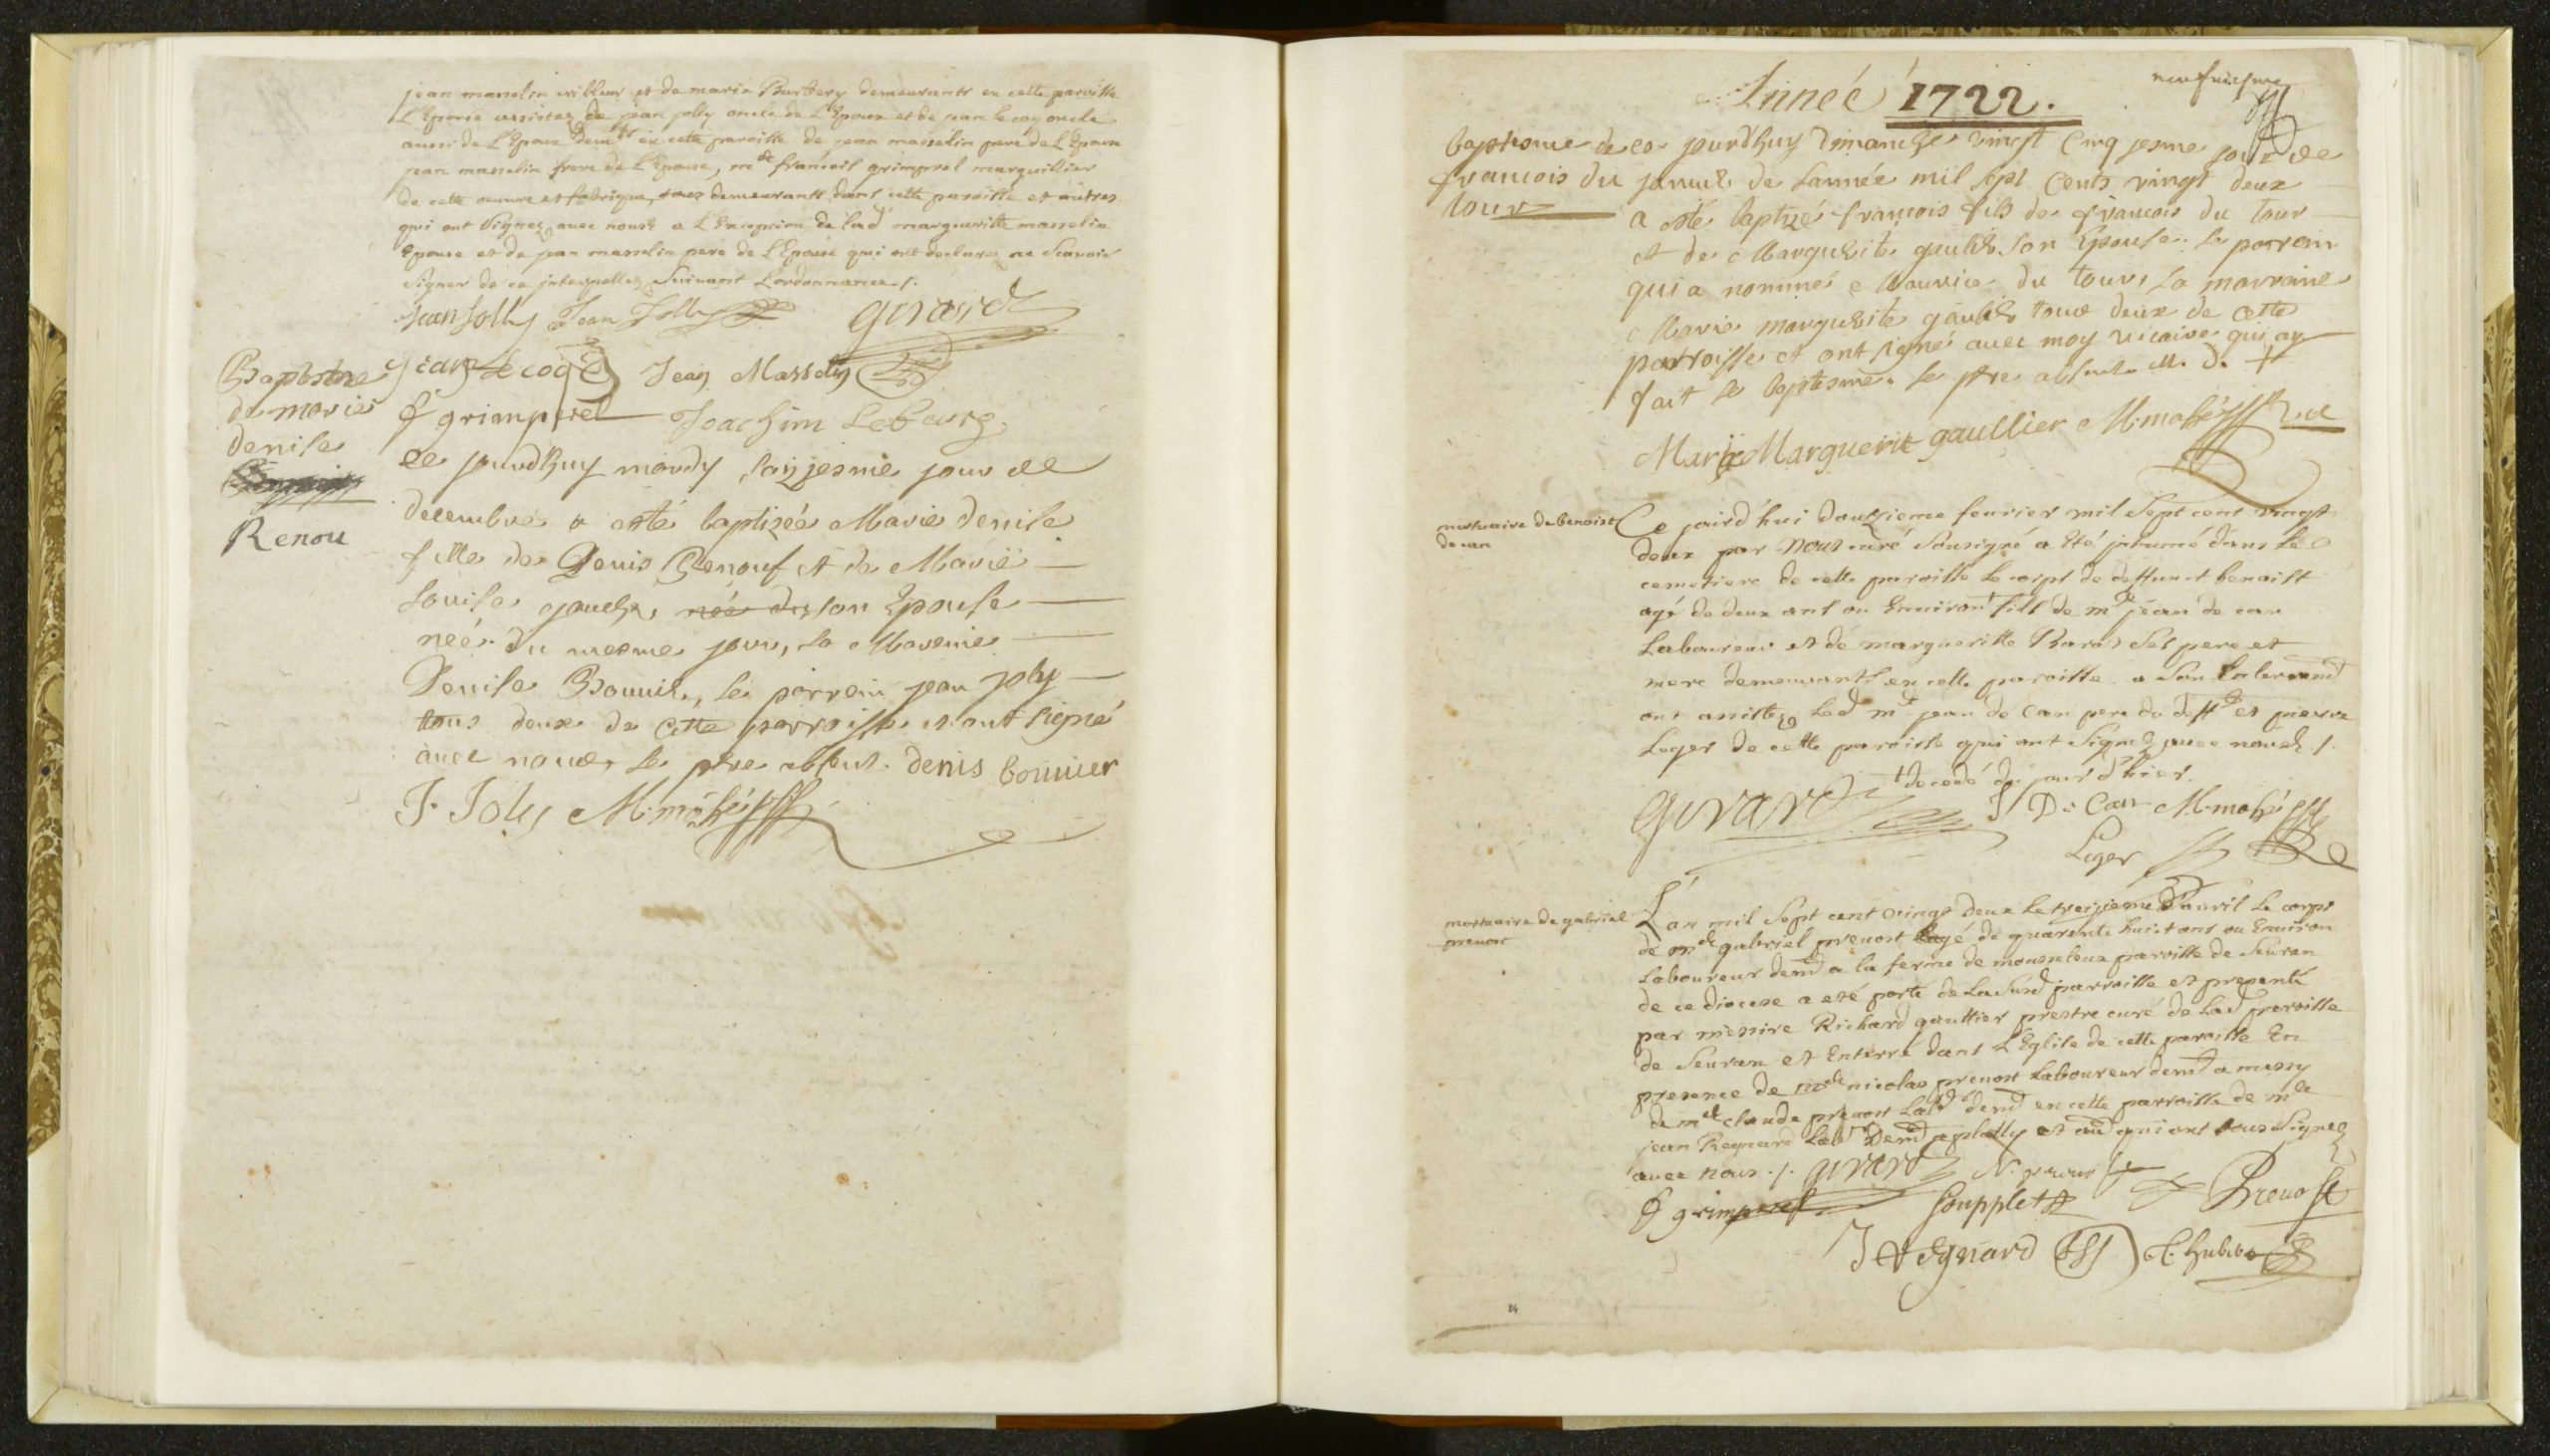 jean masselin cribleur et de marie Burbery demeurants en cette paroisse
L'Epouse assistez de jean jolly oncle de L'Epoux et de jean lecoq oncle
aussi de L'Epoux demts en cette paroisse de jean masselin pere de L'Epouse
jean masselin frere de L'Epouse, mde francois grimperel marguillier
de cette œuvre et fabrique, tous demeurants dans cette paroisse et autres
qui ont Signez avec nous a L'Exception de lad marguerite masselin
Epouse et de jean masselin pere de L'Epouse qui ont declarez ne Scavoir
Signer de ce interpellez Suivant L'ordonnance /.
Jean Jolly Jean Jolly Girard
jean Lecoq Jean Masselin
f grimperel Joachim Lebourg
Baptesme
de marie
denise
Renou
ce jourdhuy mardy seizjesme jour de
decembre a esté baptizée Marie denise
fille de Denis Renouf et de Marie
Louise gaucher, née du son Epouse
neé du mesme jour, la Mareine
Denise Bouvier, le parrein jean joly
tous deux de cette parroisse et ont signé
avec nous, le pere absent. denis bouvier
J. Joly M. mahé
Anneé 1722.
neufuiesme
baptesme de
francois du
tour
ce jourdhuy dimanche vingt cinq jesme jour de
janvier de L'année mil sept Cents vingt deux
a esté baptizé francois fils de francois du tour
et de Marguerite gaulier son Epouse. le parrein
qui a nommé Maurice du tour, la marraine
Marie marguerite gaulier tous deux de cette
parroisse et ont signé avec moy vicaire qui ay
fait le baptesme. le pere absent. M. D. +
Marie Marguerite gaullier M. mahé vic
mortuaire de benoist
de can
Ce jourd'hui douzieme feurier mil Sept cent vingt
deux par Nous curé Sousigné a Eté jnhumé dans Le
cemetiere de cette paroisse Le corps de deffunct benoist
agé de deux ans ou Environ fils de me jean de can
Laboureur et de marguerite Barat Ses pere et
mere demeurants en cette paroisse. a Son Enterremt
ont assistez Led me jean de Can pere du deft et pierre
Leger de cette paroisse qui ont Signez avec nous /.
decedé du jour d'hier.
Girard J De Can M. mahé
Leger
mortuaire de gabriel
prevost
L'an mil Sept cent vingt deux Le treizieme d'auril Le corps
de mde gabriel prevost agé de quarente huit ans ou Environ
Laboureur demt a la ferme de monceleux paroisse de Seuran
de ce diocese a eté porté de La Susd parroisse et presenté
par messire Richard gaultier prestre curé de Lad paroisse
de Seuran et Enterré dans L'Eglise de cette paroisse En
presence de mde nicolas prevost Laboureur demt a messy
de mde claude prevost Labr demt en cette parroisse de mde
jean Regnard Labr Demt a et aud qui ont tous Signez
avec nous ./. Girard N. prevost
f grimperel Soupplet Prevost
J Regnard C. hubert